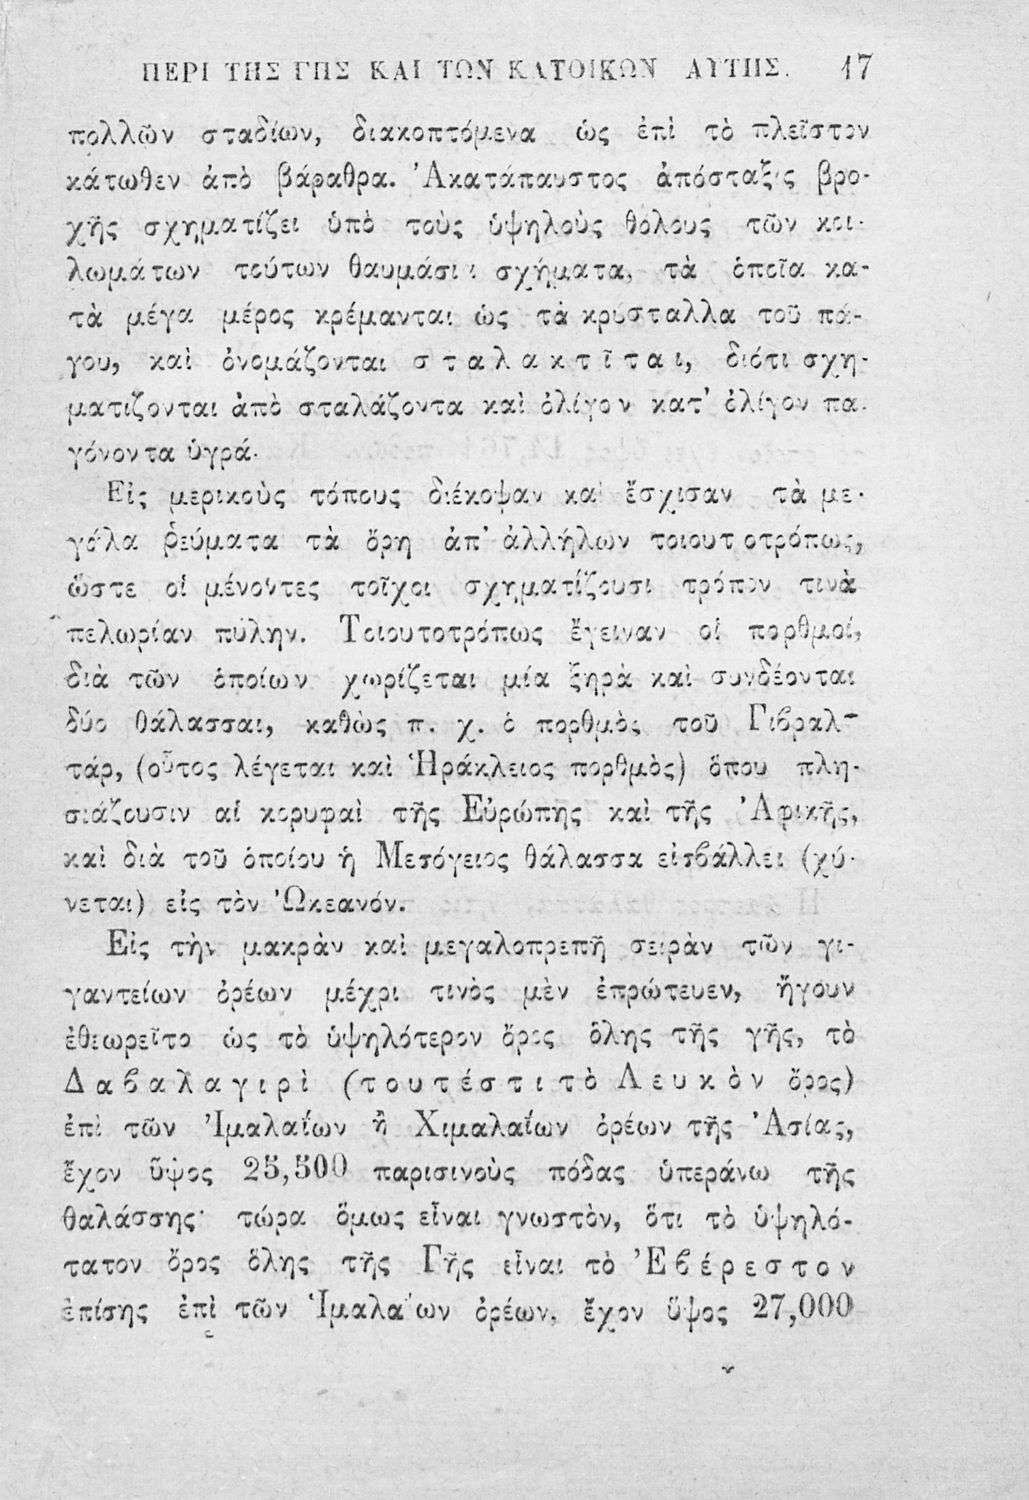 ΠΕΡΙ ΤΗΣ ΓΗΣ ΚΑΙ ΤΩΝ ΚΑΤΟΙΚΩΝ ΑΥΤΗΣ. 17
πολλῶν σταδίων, διακοπτόμενα ὡς ἐπὶ τὸ πλεῖστον
κάτωθεν ἀπὸ βάραθρα. Ἀκατάπαυστος ἀπόσταξις βρο-
χῆς σχηματίζει ὑπὸ τοὺς ὑψηλοὺς θόλους τῶν κοι-
λωμάτων τούτων θαυμάσια σχήματα, τὰ ὁποῖα κα-
τὰ μέγα μέρος κρέμανται ὡς τὰ κρύσταλλα τοῦ πά-
γου, καὶ ὀνομάζονται σταλακτῖται, διότι σχη-
ματιζονται ἀπὸ σταλάζοντα καὶ ὀλίγον κατ' ὀλίγον πα-
γόνοντα ὑγρά.
Εἰς μερικοὺς τόπους διέκοψαν καὶ ἔσχισαν τὰ με-
γάλα ῥεύματα τὰ ὄρη ἀπ' ἀλλήλων τοιουτοτρόπως,
ὥστε οἱ μένοντες τοῖχοι σχηματίζουσι τρόπον τινὰ
πελωρίαν πύλην. Τοιουτοτρόπως ἔγειναν οἱ πορθμοί,
διὰ τῶν ὁποίων χωρίζεται μία ξηρὰ καὶ συνδέονται
δύο θάλασσαι, καθὼς π. χ. ὁ πορθμὸς τοῦ Γιβραλ-
τάρ, (οὗτος λέγεται καὶ Ἡράκλειος πορθμὸς) ὅπου πλη-
σιάζουσιν αἱ κορυφαὶ τῆς Εὐρώπης καὶ τῆς Ἀφικῆς,
καὶ διὰ τοῦ ὁποίου ἡ Μεσόγειος θάλασσα εἰσβάλλει (χύ-
νεται) εἰς τὸν Ὠκεανόν.
Εἰς τὴν μακρὰν καὶ μεγαλοπρεπῆ σειρὰν τῶν γι-
γαντείων ὀρέων μέχρι τινὸς μὲν ἐπρώτευεν, ἤγουν
ἐθεωρεῖτο ὡς τὸ ὑψηλότερον ὄρος ὅλης τῆς γῆς, τὸ
Δαβαλαγιρὶ (τουτέστι τὸ Λευκὸν ὄρος)
ἐπὶ τῶν Ἰμαλαΐων ἢ Χιμαλαΐων ὀρέων τῆς Ἀσίας,
ἔχον ὕψος 25,500 παρισινοὺς πόδας ὑπεράνω τῆς
θαλάσσης· τώρα ὅμως εἶναι γνωστὸν, ὅτι τὸ ὑψηλό-
τατον ὄρος ὅλης τῆς Γῆς εἶναι τὸ Ἐβέρεστον
ἐπίσης ἐπὶ τῶν Ἱμαλαΐων ὀρέων, ἔχον ὕψος 27,000